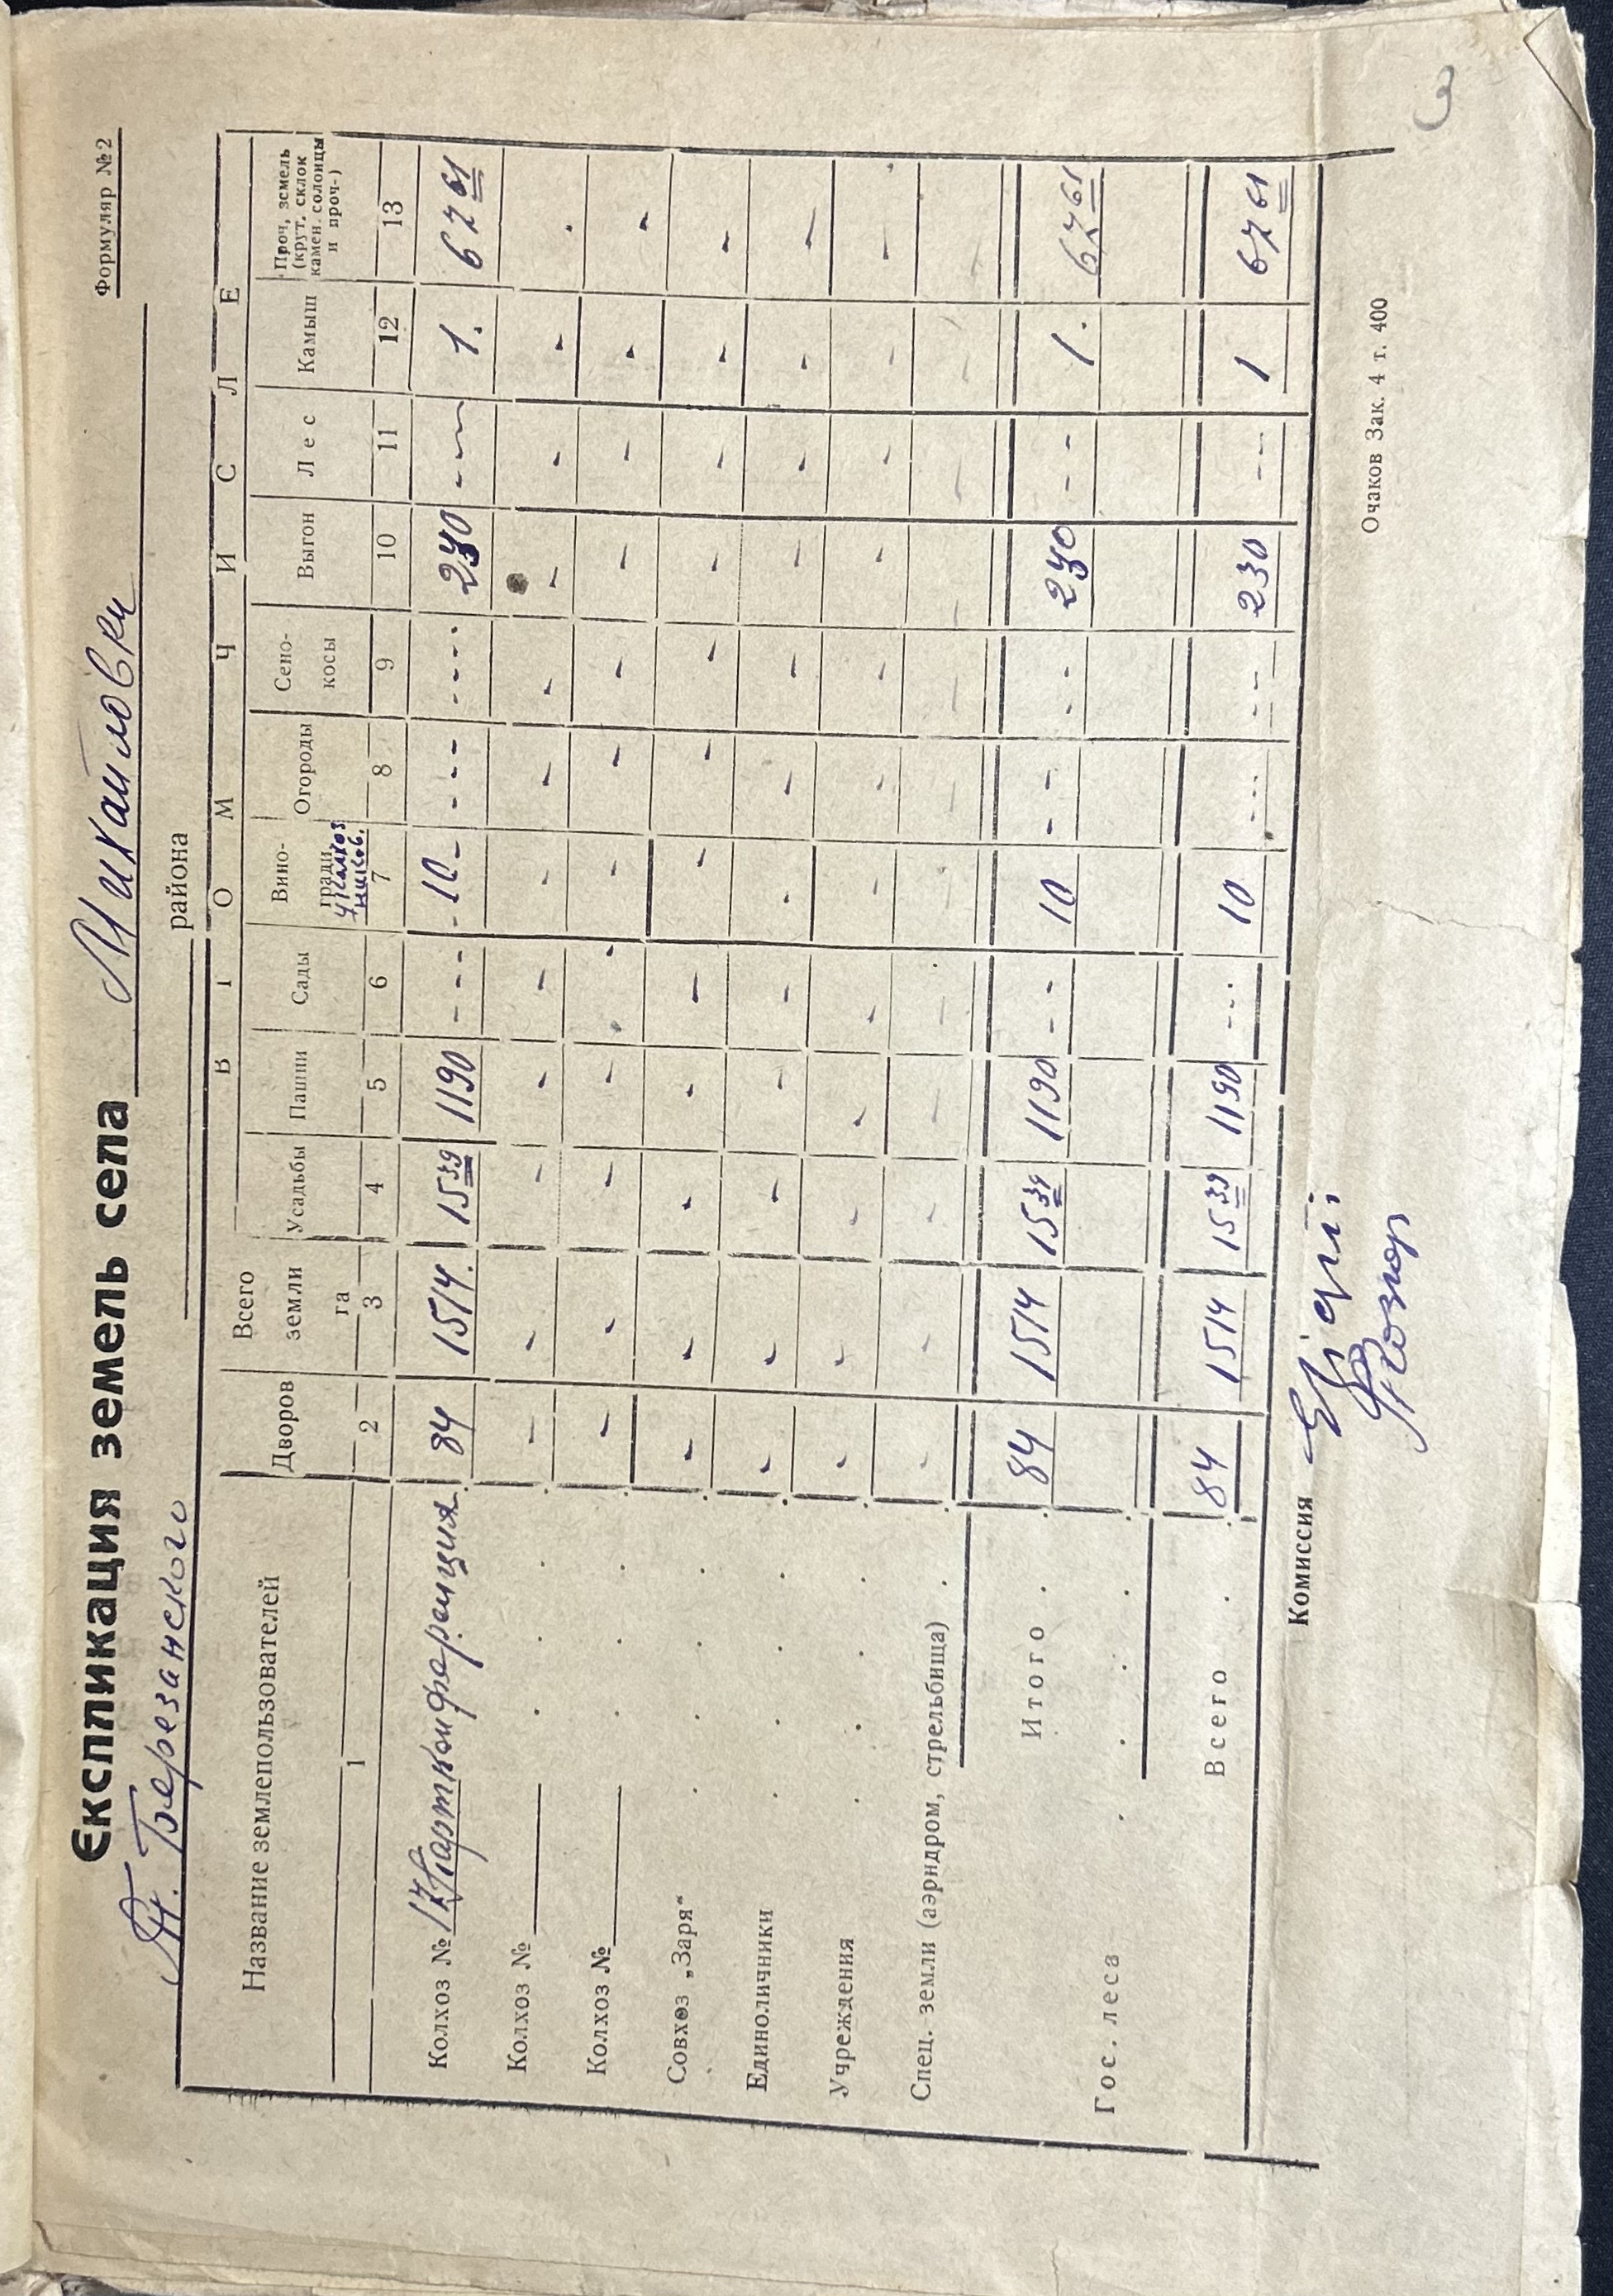 3
Формуляр №2
Експликация земель села Михайловки
Тт. Березанского района
Название землепользователей
Дворов
Всего земли га
В Т О М Ч И С Л Е
Усадьбы
Пашни
Сады
Вино-
гради
Огороды
Сено-
косы
Выгон
Лес
Камыш
Проч, земель
(крут. склок
камен. солонцы
и проч-)
1 2 3 4 5 6 7 8 9 10 11 12 13
Колхоз № 17 Партконференция 84 1514. 15 39 1190 - - - - 10 - - - - - - - - 230 - - - 1. 67 61
Колхоз №
Колхоз №
Совхоз „Заря“
Единоличники
Учреждения
Спец. земли (аэрндром, стрельбища)
Итого 84 1514 15 39 1190 - - 10 - - - - 230 - - 1. 67 61
Гос. леса
Всего 84 1514 15 39 1190 - - - 10 - - - - - - 230 - - 1 67 61
Комиссия
Очаков Зак. 4 т. 400